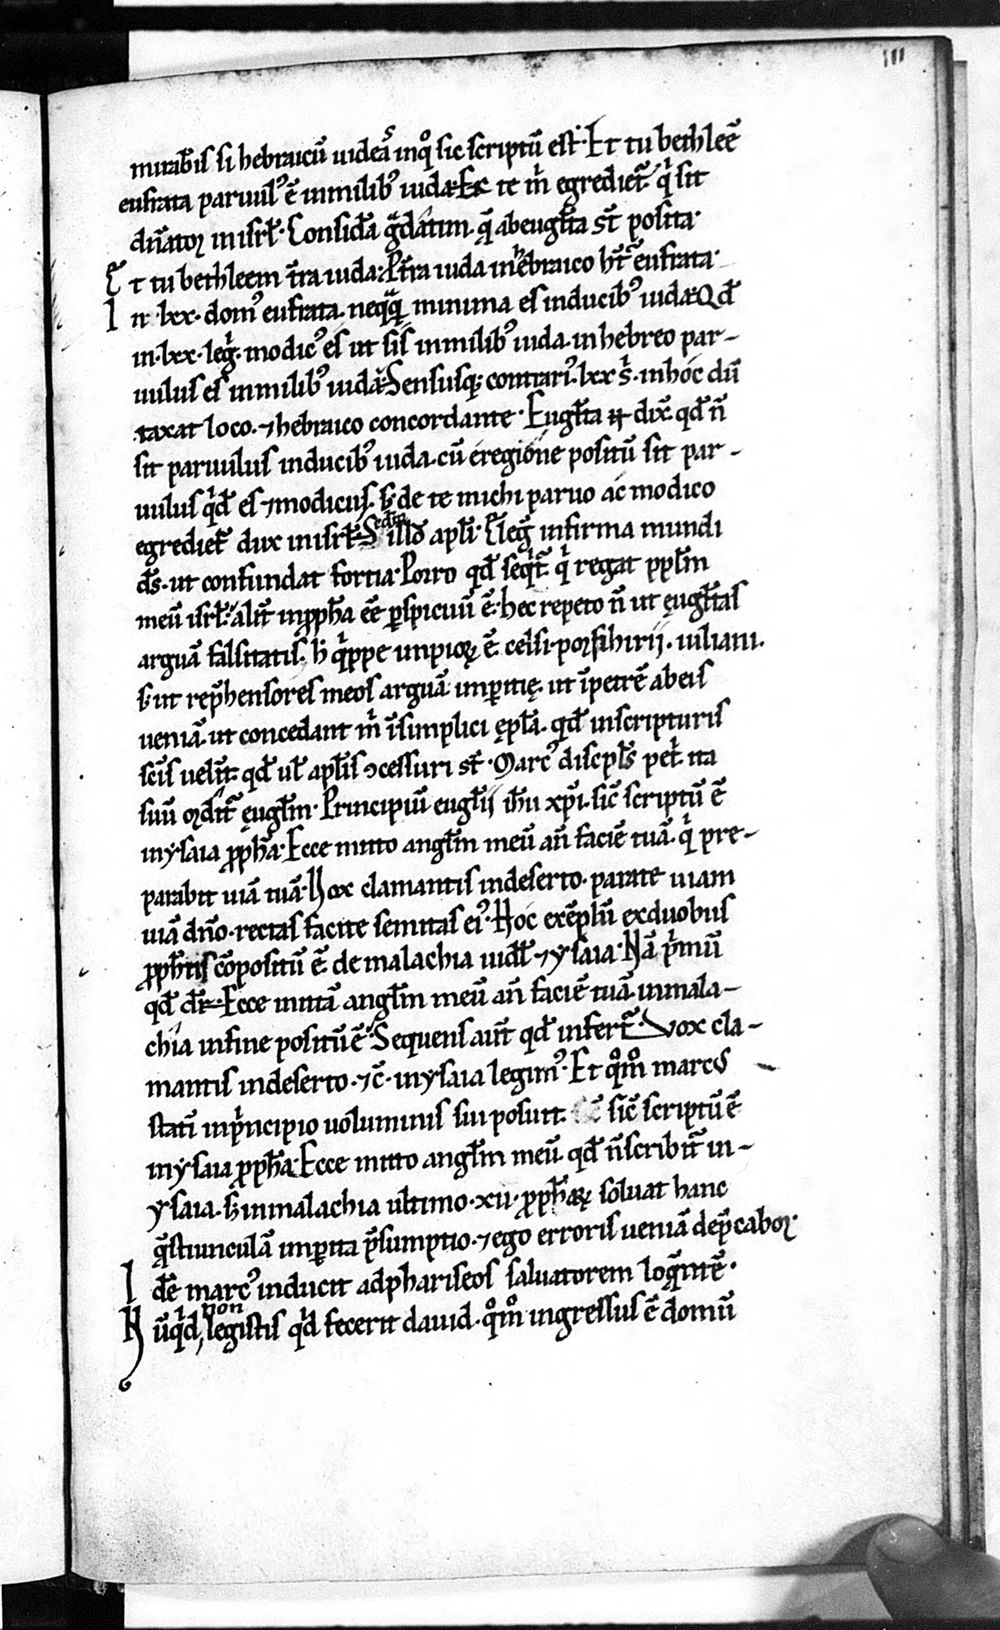 111
mirab̃is si hebraicũ uideãs inq̊ sic scriptũ est. Et tu bethleẽ
eufrata paruul᷒ ẽ in milib᷒ iuda. Ex te m̃ egrediet̃ q̃ sit
dñatoꝝ in isrl̃. Considã g̃datim. q̃ ab eug̃lta st̃ posita.
Et tu bethleem t̃ra iuda: P t̃ra iuda in hebraico ht̃ eufrata.
In .lxx. dom᷒ eufrata. neq̃q̃ minima es in ducib᷒ iuda. Qd̃
in .lxx. leg̃. modic᷒ es ut sis in milib᷒ iuda. in hebreo par-
uulus es in milib᷒ iuda. Sensusq; contrari᷒. lxx s̃. in hoc dũ
taxat loco. ⁊ hebraico concordante. Eug̃lta ꝯ dix̃ qd̃ ñ
sit paruulus in ducib᷒ iuda. cũ e regione positũ sit par-
uulus q̃d es ⁊ modicus. s; de te michi paruo ac modico
egrediet̃ dux in isrl̃. Sedm̃ illđ apl̃i. Eleg̃ infirma mundi
d̃s. ut confundat fortia. Porro qd̃ seqt̃ q̃ regat ppl̃m
meũ isrl̃. alit̃ in ꝓpha eẽ ꝑspicuũ ẽ. hec repeto ñ ut eug̃ltas
arguã falsitatis, h̃ q̃ppe impioꝝ ẽ. celsi. porfihirij. iuliani.
s; ut rep̃hensores meos arguã imꝑitię. ut ĩpetrẽ ab eis
ueniã. ut concedant m̃ ĩ simplici ępl̃a. qd̃ in scripturis
sc̃is uelit̃ qd̃ ul̃ apl̃is ꝯcessuri st̃. Marc᷒ discipl̃s pet̃ ita
suũ ordit̃ ęug̃lm. Principiũ eug̃lij ih̃u xp̃i. sic̃ scriptũ ẽ
in y.saia ꝓpha. Ecce mitto ang̃lm meũ añ faciẽ tuã. q̃ pre-
parabit uiã tuã. Uox clamantis in deserto. parate uiam
uiã dño. rectas facite semitas ei᷒. Hoc exẽplũ ex duobus
ꝓphtis cõpositũ ẽ de malachia uidl̃ ⁊ ysaia. Nã p̃mũ
qd̃ dr̃. Ecce mittã ang̃lm meũ añ faciẽ tuã. in mala-
chia in fine positũ ẽ. Sequens aut̃ qd̃ infert̃. Vox cla-
mantis in deserto. ⁊c̃. in ysaia legim᷒. Et qm̊ marcus
statĩ in p̃ncipio uoluminis sui posuit. sic̃ scriptũ ẽ
in y.saia ꝓpha. Ecce mitto ang̃lm meũ qd̃ ñ scribit̃ in-
ysaia. s; in malachia ultimo .xii. ꝓphaꝝ soluat hanc
q̃stiunculã imꝑita p̃sumptio. ⁊ ego erroris ueniã dep̃cabor.
Idẽ marc᷒ inducit ad phariseos saluatorem loq̃ntẽ.
Nũq̃d, non legistis q̃d fecerit dauid. qm̊ ingressus ẽ domũ